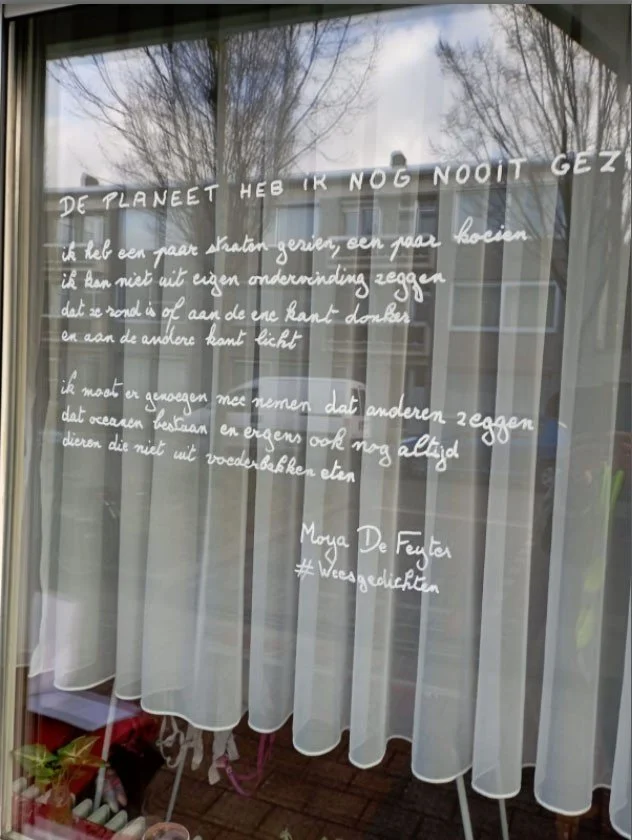 DE PLANEET HEB IK NOG NOOIT GEZ
ik heb een paar straten gezien, een paar koeien
ik kan niet uit eigen ondervinding zeggen
dat ze rond is of aan de ene kant donker
en aan de andere kant licht
ik moet er genoegen mee nemen dat anderen zeggen
dat oceanen bestaan en ergens ook nog altijd
dieren die niet uit voederbakken eten
Moya De Feyter
#Weesgedichten